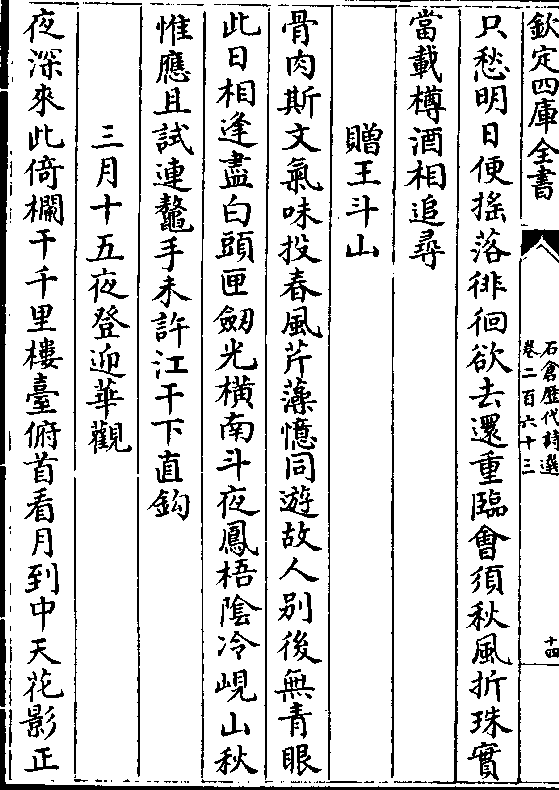 欽定四庫全書
石倉歷代詩選
卷二百六十三
十四
只愁明日便搖落徘徊欲去還重臨會須秋風折珠實
當載樽酒相追尋
贈王斗山
骨肉斯文氣味投春風芹藻憶同遊故人别後無青眼
此日相逢盡白頭匣劒光横南斗夜鳳梧陰冷峴山秋
惟應且試連鼇手未許江干下直鈎
三月十五夜登迎華觀
夜深來此倚欄干千里樓臺俯首看月到中天花影正